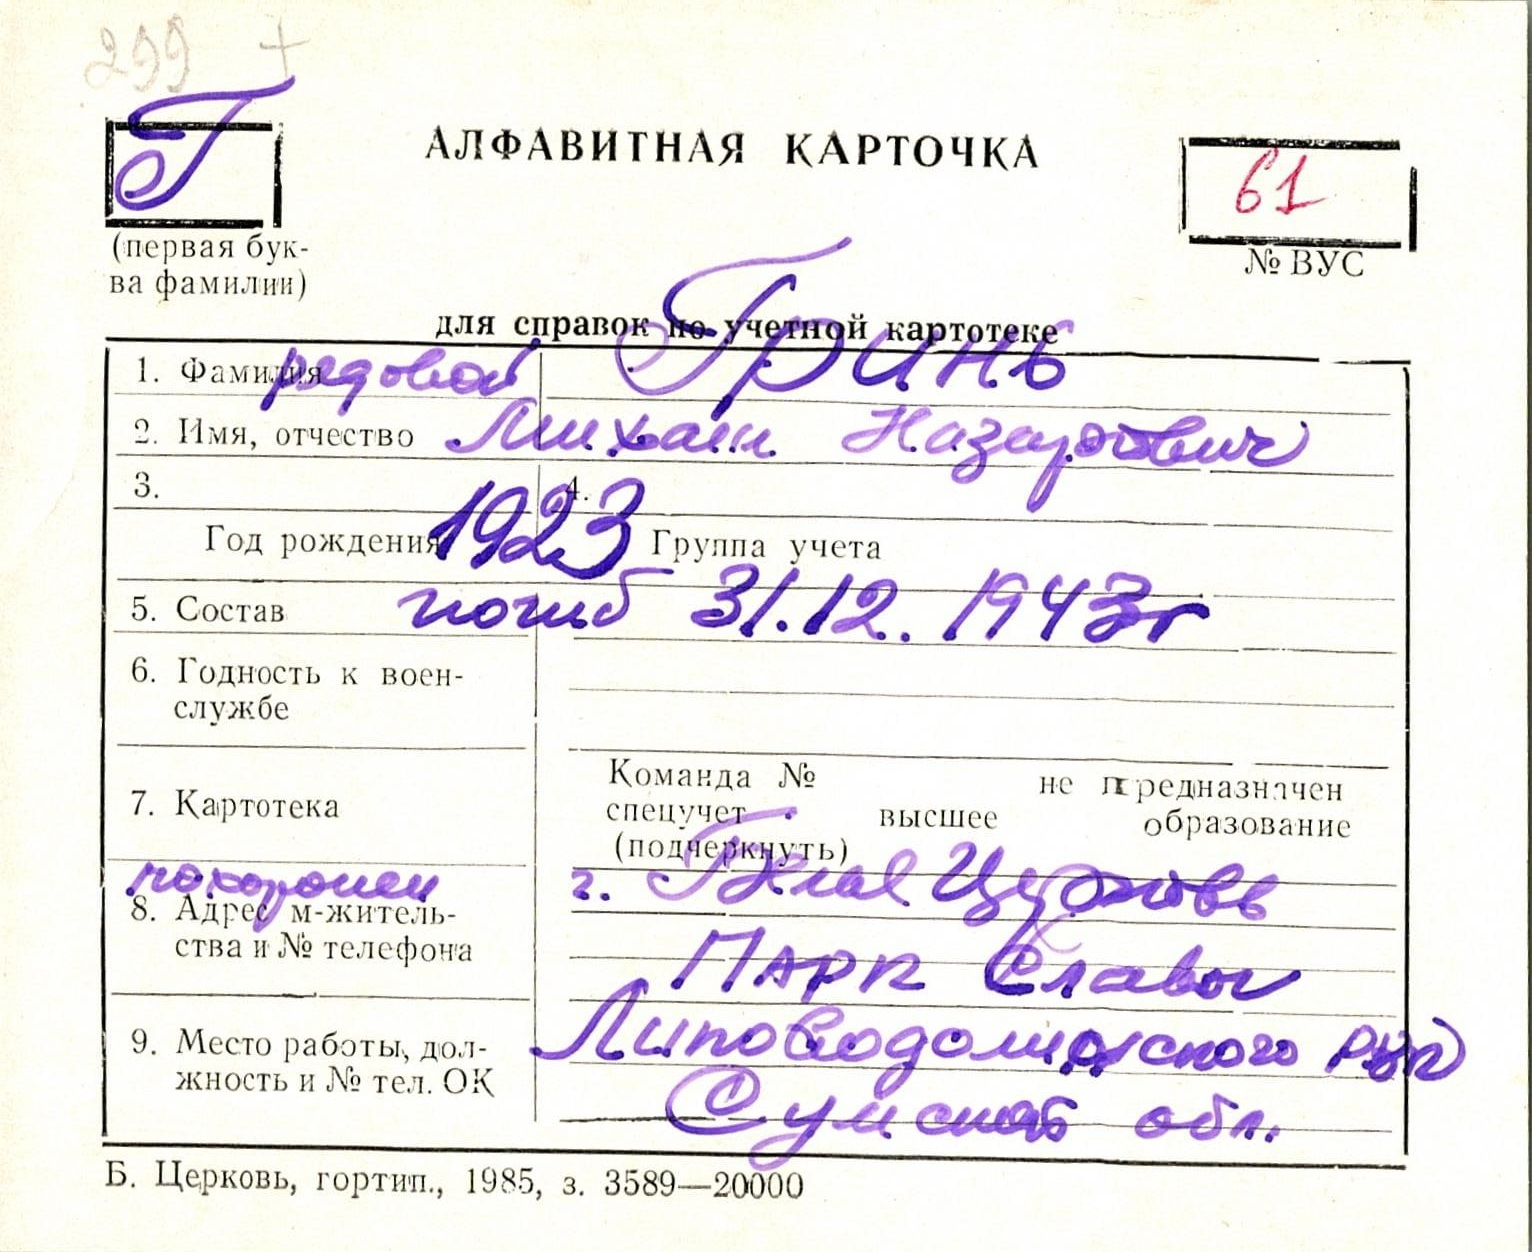 299 +
Г
АЛФАВИТНАЯ КАРТОЧКА
61
(первая бук-
ва фамилии)
№ ВУС
для справок по учетной картотеке
1. Фамилия рядовой Гринь
2. Имя, отчество Михаил Назарович
3. 4.
Год рождения 1923 Группа учета
5. Состав погиб 31.12.1943г
6. Годность к воен-
службе
Команда № не предназначен
7. Картотека
спецучет высшее образование
(подчеркнуть)
похоронен г. Белая Церковь
8. Адрес м-житель-
ства и № телефона
Парк Славы
9. Место работы, дол-
жность и № тел. ОК
Липоводолинского РВК
Сумской обл.
Б. Церковь, гортип., 1985, з. 3589—20000